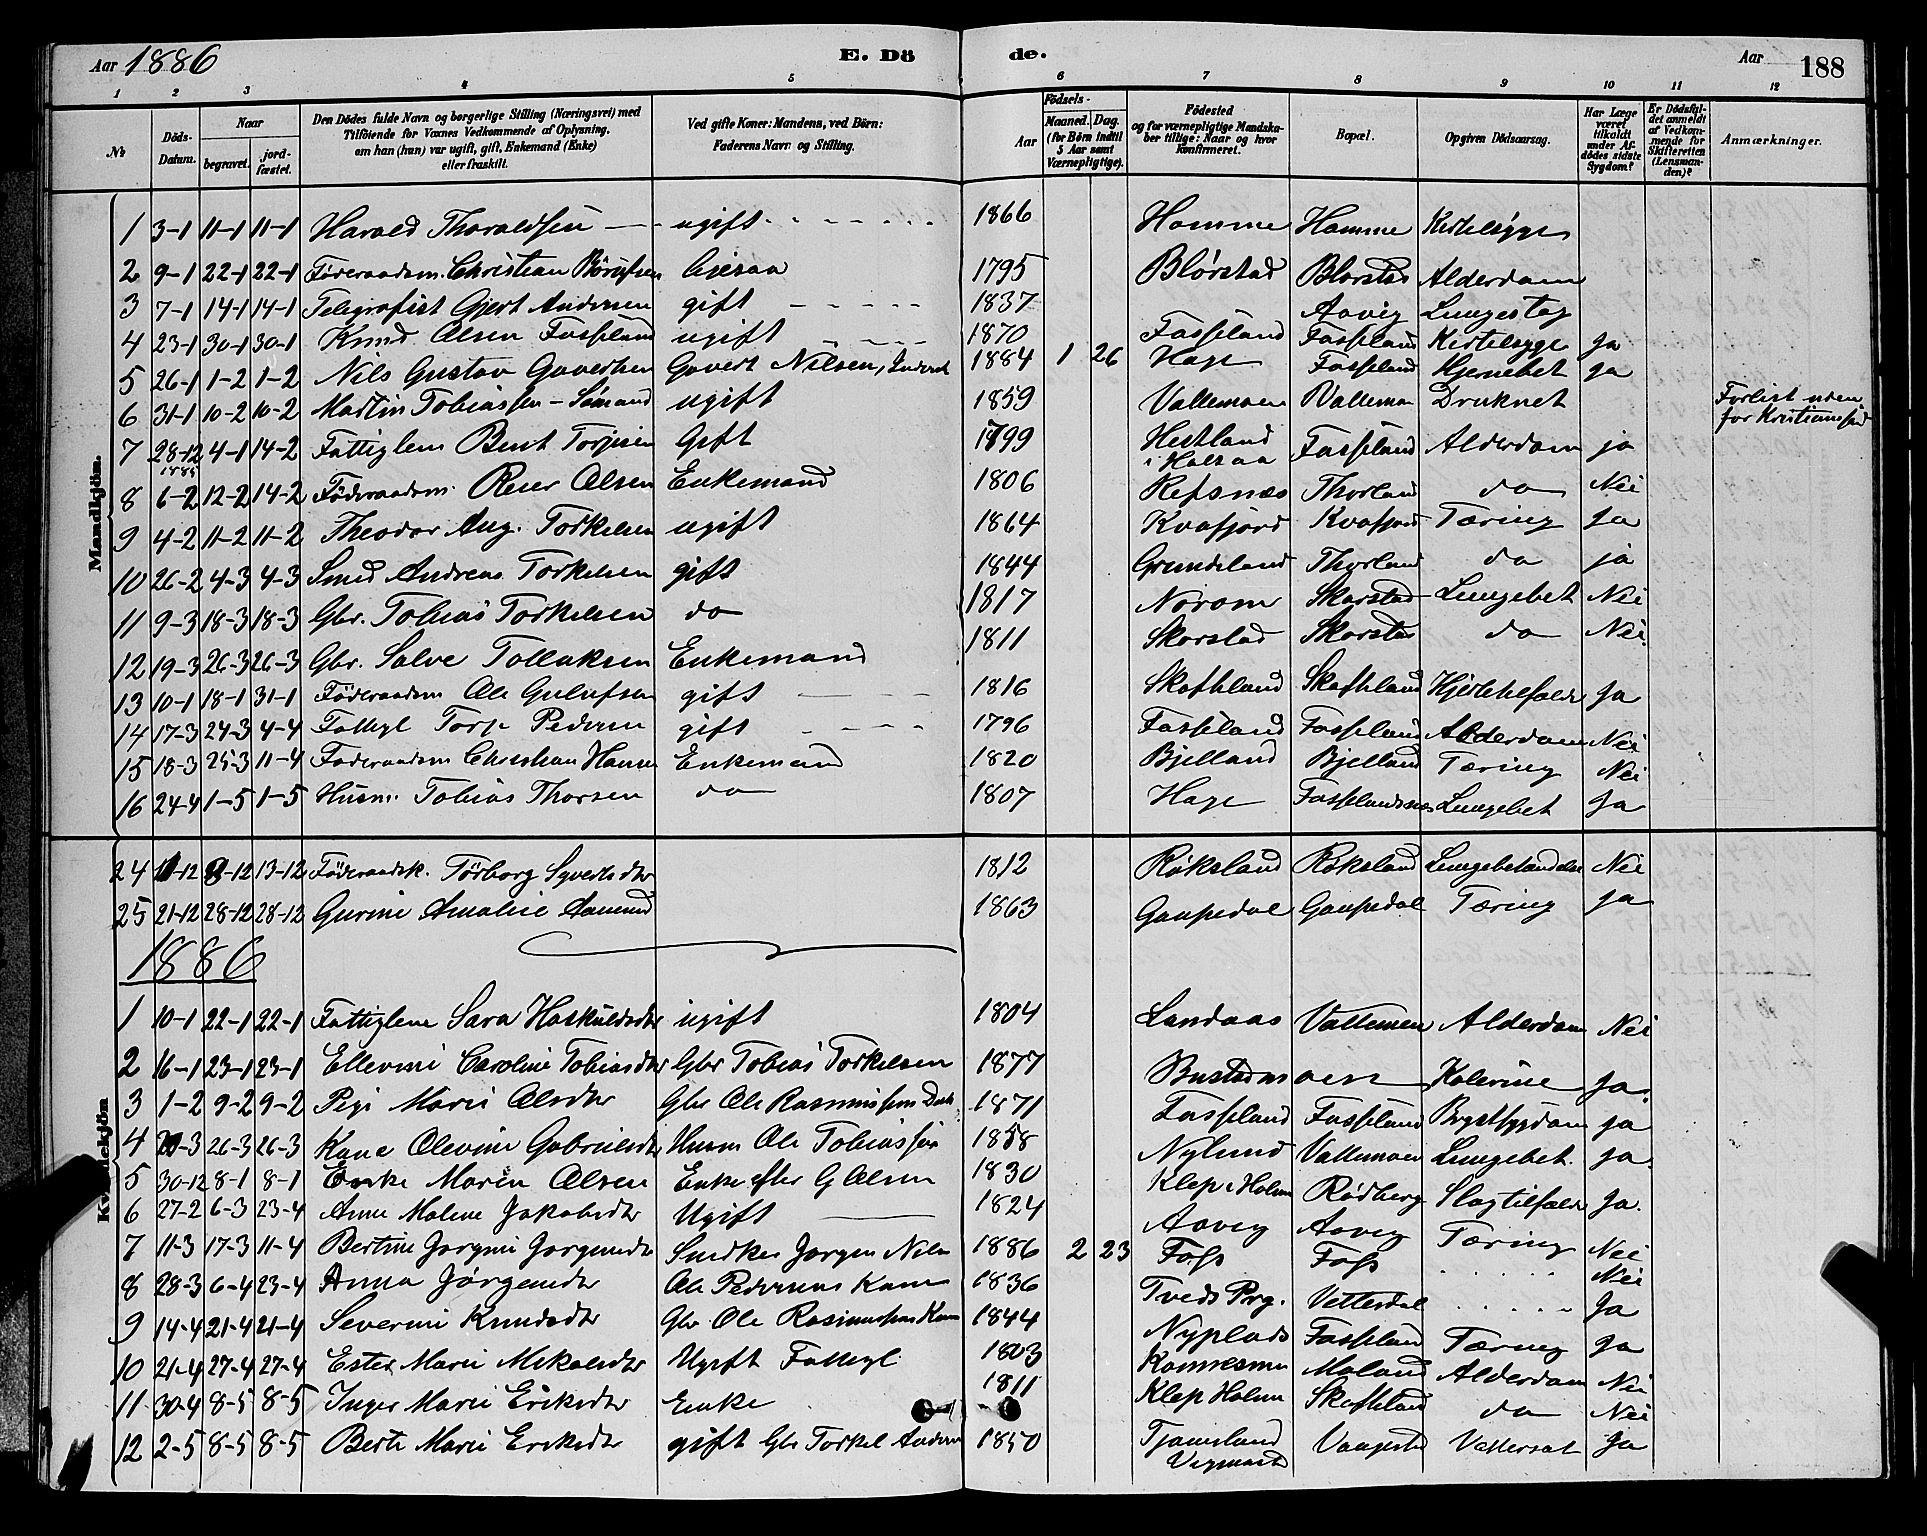 Aar 1886 E. Dö de. Aar 188
1 2 3 4 5 6 7 8 9 10 11 12
№ Döds-Datum. Naar begravet. jordfæstet. Den Dödes fulde Navn og borgerlige Stilling (Næringsvei) med Tilföiende for Voxnes Vedkommende af Oplysning, om han (hun) var ugift, gift, Enkemand (Enke) eller fraskilt. Ved gifte Koner: Mandens, ved Börn: Faderens Navn og Stilling. Födsels- Aar Maaned. Dag. (for Börn indtil 5 Aar samt Værnepligtige). Födested og for værnepligtige Mandskaber tillige: Naar og hvor konfirmeret. Bopæl. Opgiven Dödsaarsag. Har Læge været tilkaldt under Afdödes sidste Sygdom? Er Dödsfaldet anmeldt af Vedkommende for Skifteretten (Lensmanden)? Anmærkninger.
Mandkjön.
1 3-1 11-1 11-1 Harald Tharaldsen ugift 1866 Homme Homme Kirtelsyge
2 9-1 22-1 22-1 Föderaadsm. Christian 1795 Blørstad Blørstad Alderdom
3 7-1 14-1 14-1 Telegrafist Gjert Andersen gift 1837 Aavig
4 23-1 30-1 30-1 Knud Olsen Fosseland ugift 1870 Fosseland Fosseland Kirtelsyge ja
5 26-1 1-2 1-2 Nils Gustav Govertsen Govert Nilsen, 1884 1 26 Hage Fosseland Hjernebet ja
6 31-1 10-2 10-2 Martin Tobiassen - Sømand ugift 1859 Vallemoen Vallemoen Druknet Forlist uden for Kristianssand
7 28-12 1885 4-1 14-2 Fattiglem Bent Torjesen Gift 1799 Hestland i Halsaa Fosseland Alderdom ja
8 6-2 12-2 14-2 Föderaadsm. Reier Olsen Enkemand 1806 Refsnæs Thorland do Nei
9 4-2 11-2 11-2 Theodor Aug. Torkelsen ugift 1864 Kvafjord Kvafjord Tæring Ja
10 26-2 4-3 4-3 Smed Andreas Torkelsen gift 1844 Grundeland Thorland do ja
11 9-3 18-3 18-3 Gbr. Tobias Torkelsen do 1817 Norom Skorstad Lungebet Nei
12 19-3 26-3 26-3 Gbr. Salve Tollaksen Enkemand 1811 Skorstad Skorstad do Nei
13 10-1 18-1 31-1 Föderaadsm Ole Gulufsen gift 1816 Skofteland Skofteland Ja
14 17-3 24-3 4-4 Fattigl Torje Pedersen gift 1796 Fosseland Fosseland Alderdom Nei
15 18-3 25-3 11-4 Føderaadsm Christian Hansen Enkemand 1820 Bjelland Bjelland Tæring Nei
16 24-4 1-5 1-5 Husm. Tobias Thorsen do 1807 Hage Fosselandsnes Lungebet Ja
24 12 12 13-12 Föderaadsk. Törborg Syvertsdtr 1812 Røksland Røksland Lungebetændelse Nei
25 21-12 28-12 28-12 Gurine Amalie Aamund 1863 Gaupedal Gaupedal Tæring ja
1886
Kvindekjön
1 10-1 22-1 22-1 Fattiglem Sara Haskuldsdtr ugift 1804 Landaas Vallemoen Alderdom Nei
2 16-1 23-1 23-1 Ellevine Caroline Tobiasdtr Gbr Tobias Torkelsen 1877 Bustadmoen Kolerine Ja.
3 1-2 9-2 9-2 Pigi Marie Olsdtr Gbr Ole Rasmussens Datr 1871 Fosseland Fosseland Brystsygdom ja
4 -3 26-3 26-3 Kone Olevine Gabrielsdtr Husm Ole Tobiassen 1858 Nylund Vallemoen Lungebet. ja.
5 30-12 8-1 8-1 Enke Maren Olsen Enke efter G Olsen 1830 Klep i Holm Rødberg Slagtilfælde Ja.
6 27-2 6-3 23-4 Anne Malene Jakobsdtr Ugift 1824 Aavig Aavig Tæring Nei
7 11-3 17-3 11-4 Bertine Jorgine Jorgensdtr Snedker Jorgen Nilsen 1886 2 23 Foss Foss Nei
8 28-3 6-4 23-4 Anna Jörgensdtr Ole Pedersens Kone 1836 Tveds Prg. Vetterdal Ja
9 14-4 21-4 21-4 Severine Knudsdtr Gbr Ole Rasmussens Kone 1844 Nyplads Fosseland Tæring Ja
10 21-4 27-4 27-4 Ester Marie Mikalsdtr Ugift Fattigl 1803 Moland Alderdom Nei
11 30-4 8-5 8-5 Inger Marie Eriksdtr Enke 1811 Klep Holm Skofteland do Nei
12 2-5 8-5 8-5 Berte Marie Eriksdtr gift Gbr Torkel Andersen 1850 Tjomsland Vaagestad Vattersot Ja